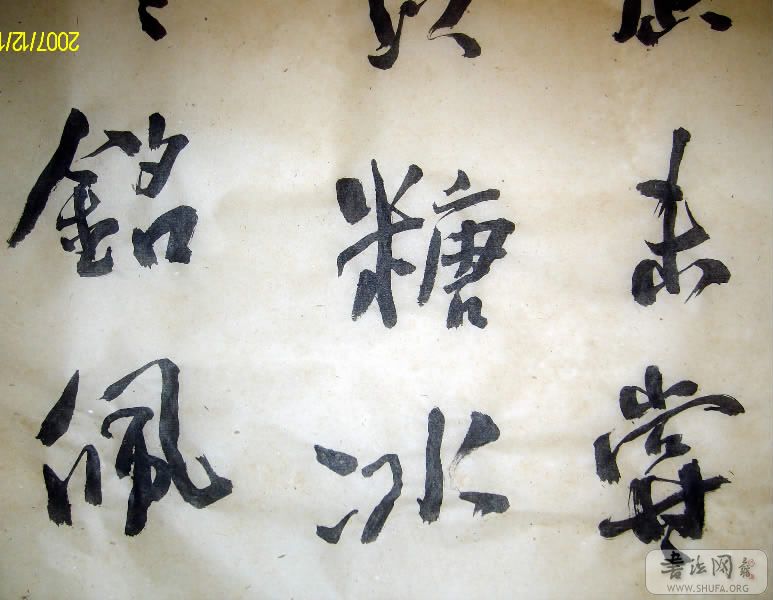 未嘗
糖冰
銘佩
2007/12/1
書法网
WWW.SHUFA.ORG